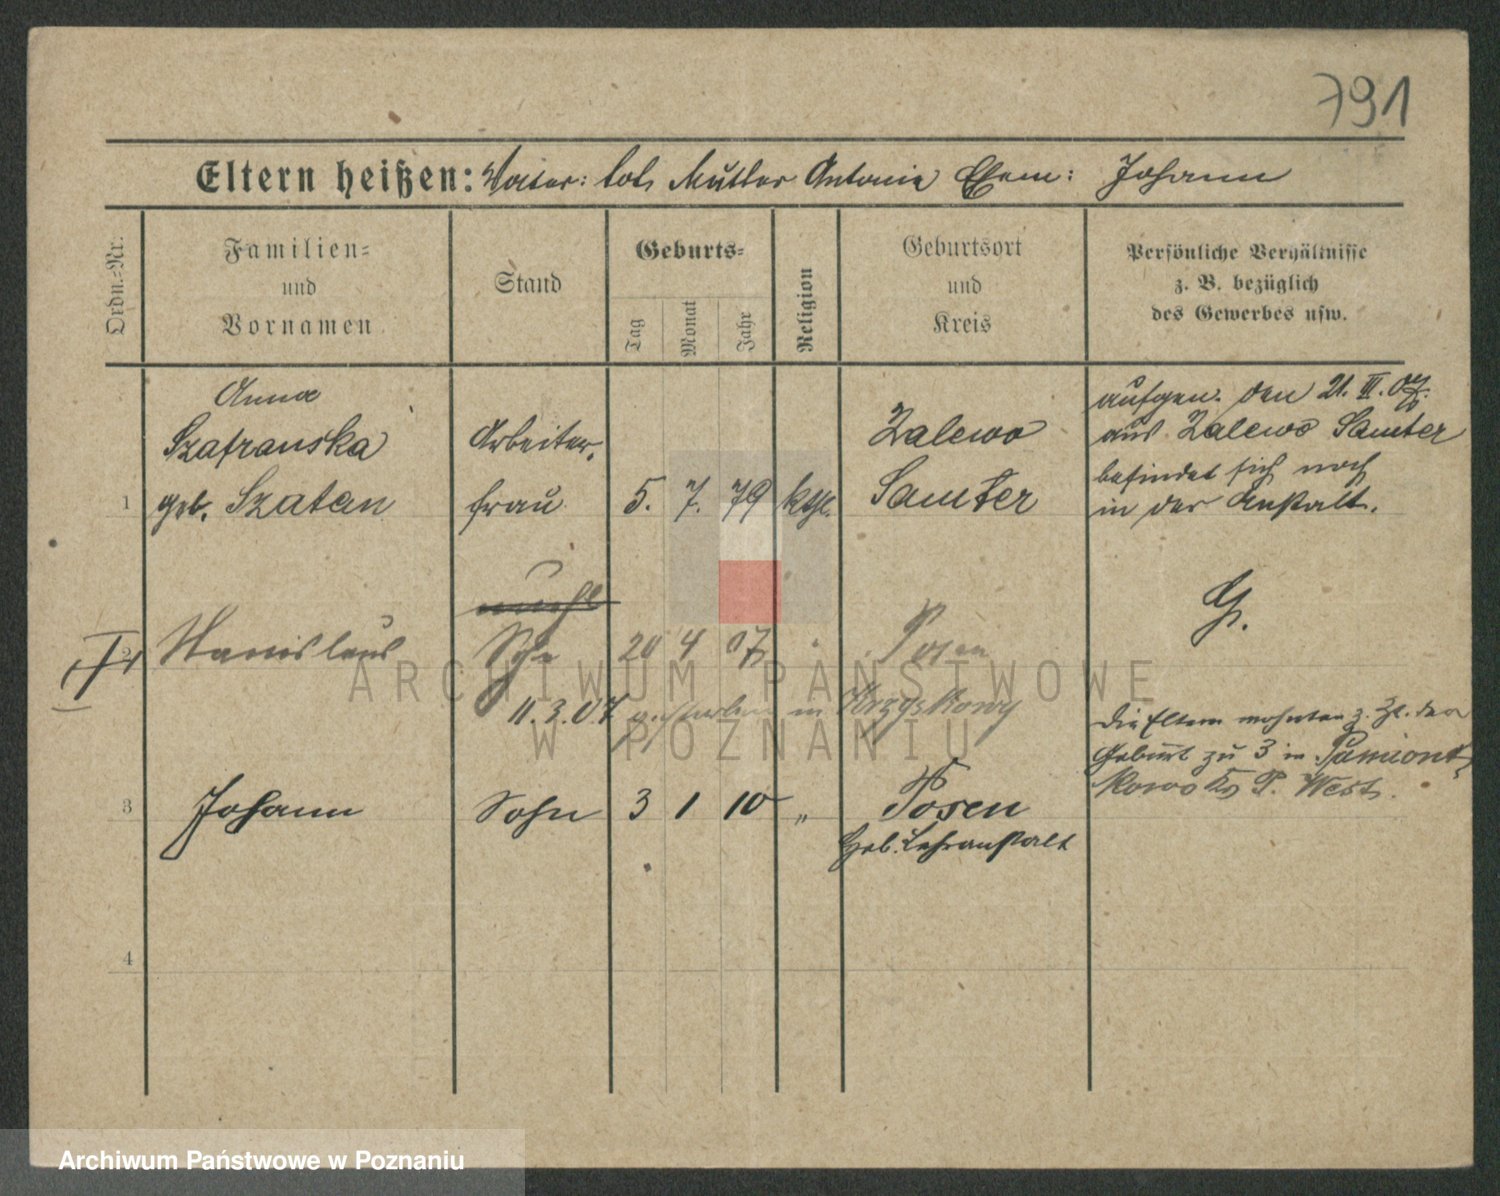 791
Eltern heißen: Vater: tot, Mutter Antonie Ehem: Johann
Ordn.-Nr.
Familien-
und
Vornamen
Stand
Geburts-
Tag
Monat
Jahr
Religion
Geburtsort
und
Kreis
Persönliche Verhältnisse
z. B. bezüglich
des Gewerbes usw.
1
Anna
Szafranska
geb. Szatan
Arbeiter-
frau
5. 7. 79
kthl.
Zalewo
Samter
aufgen. den 21. III. 07.
aus Zalewo Samter
befindet sich noch
in der Anstalt.
G.
2
Stanislaus
unehl
Sohn
20 4 07
"
Posen
11.3.07 gestorben in Krzyskowy
3
Johann
Sohn
3 1 10
"
Posen
Heb. Lehranstalt
Die Eltern wohnten z. Zt. der
Geburt zu 3 in Pamiont-
kowo Kr P. West.
4
ARCHIWUM PAŃSTWOWE
W POZNANIU
Archiwum Państwowe w Poznaniu